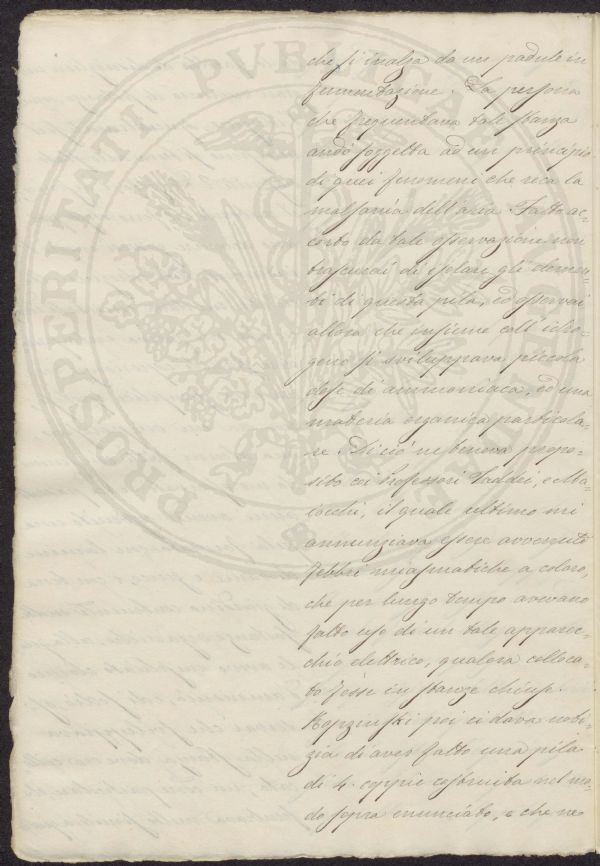 PROSPERITATI PVBLICAE
che si inalza da un padule in
fermentazione. La persona
che frequentava tale stanza
andò soggetta ad un principio
di quei fenomeni che reca la
malsania dell'aria. Fatto ac-
corto da tale osservazione non
trascurai di isolare gli elemen-
ti di questa pila, ed osservai
allora che insieme coll'idro-
geno si sviluppava piccola
dose di ammoniaca, ed una
materia organica particola-
re. Di ciò ne teneva propo-
sito coi Professori Taddei, e Ma-
jocchi, il quale ultimo mi
annunziava essere avvenute
febbri miasmatiche a coloro,
che per lungo tempo avevano
fatto uso di un tale apparec-
chio elettrico, qualora colloca-
to fosse in stanze chiuse.
poi ci dava noti-
zia di aver fatto una pila
di 4. coppie costruita nel mo-
do sopra enunciato, e che ne